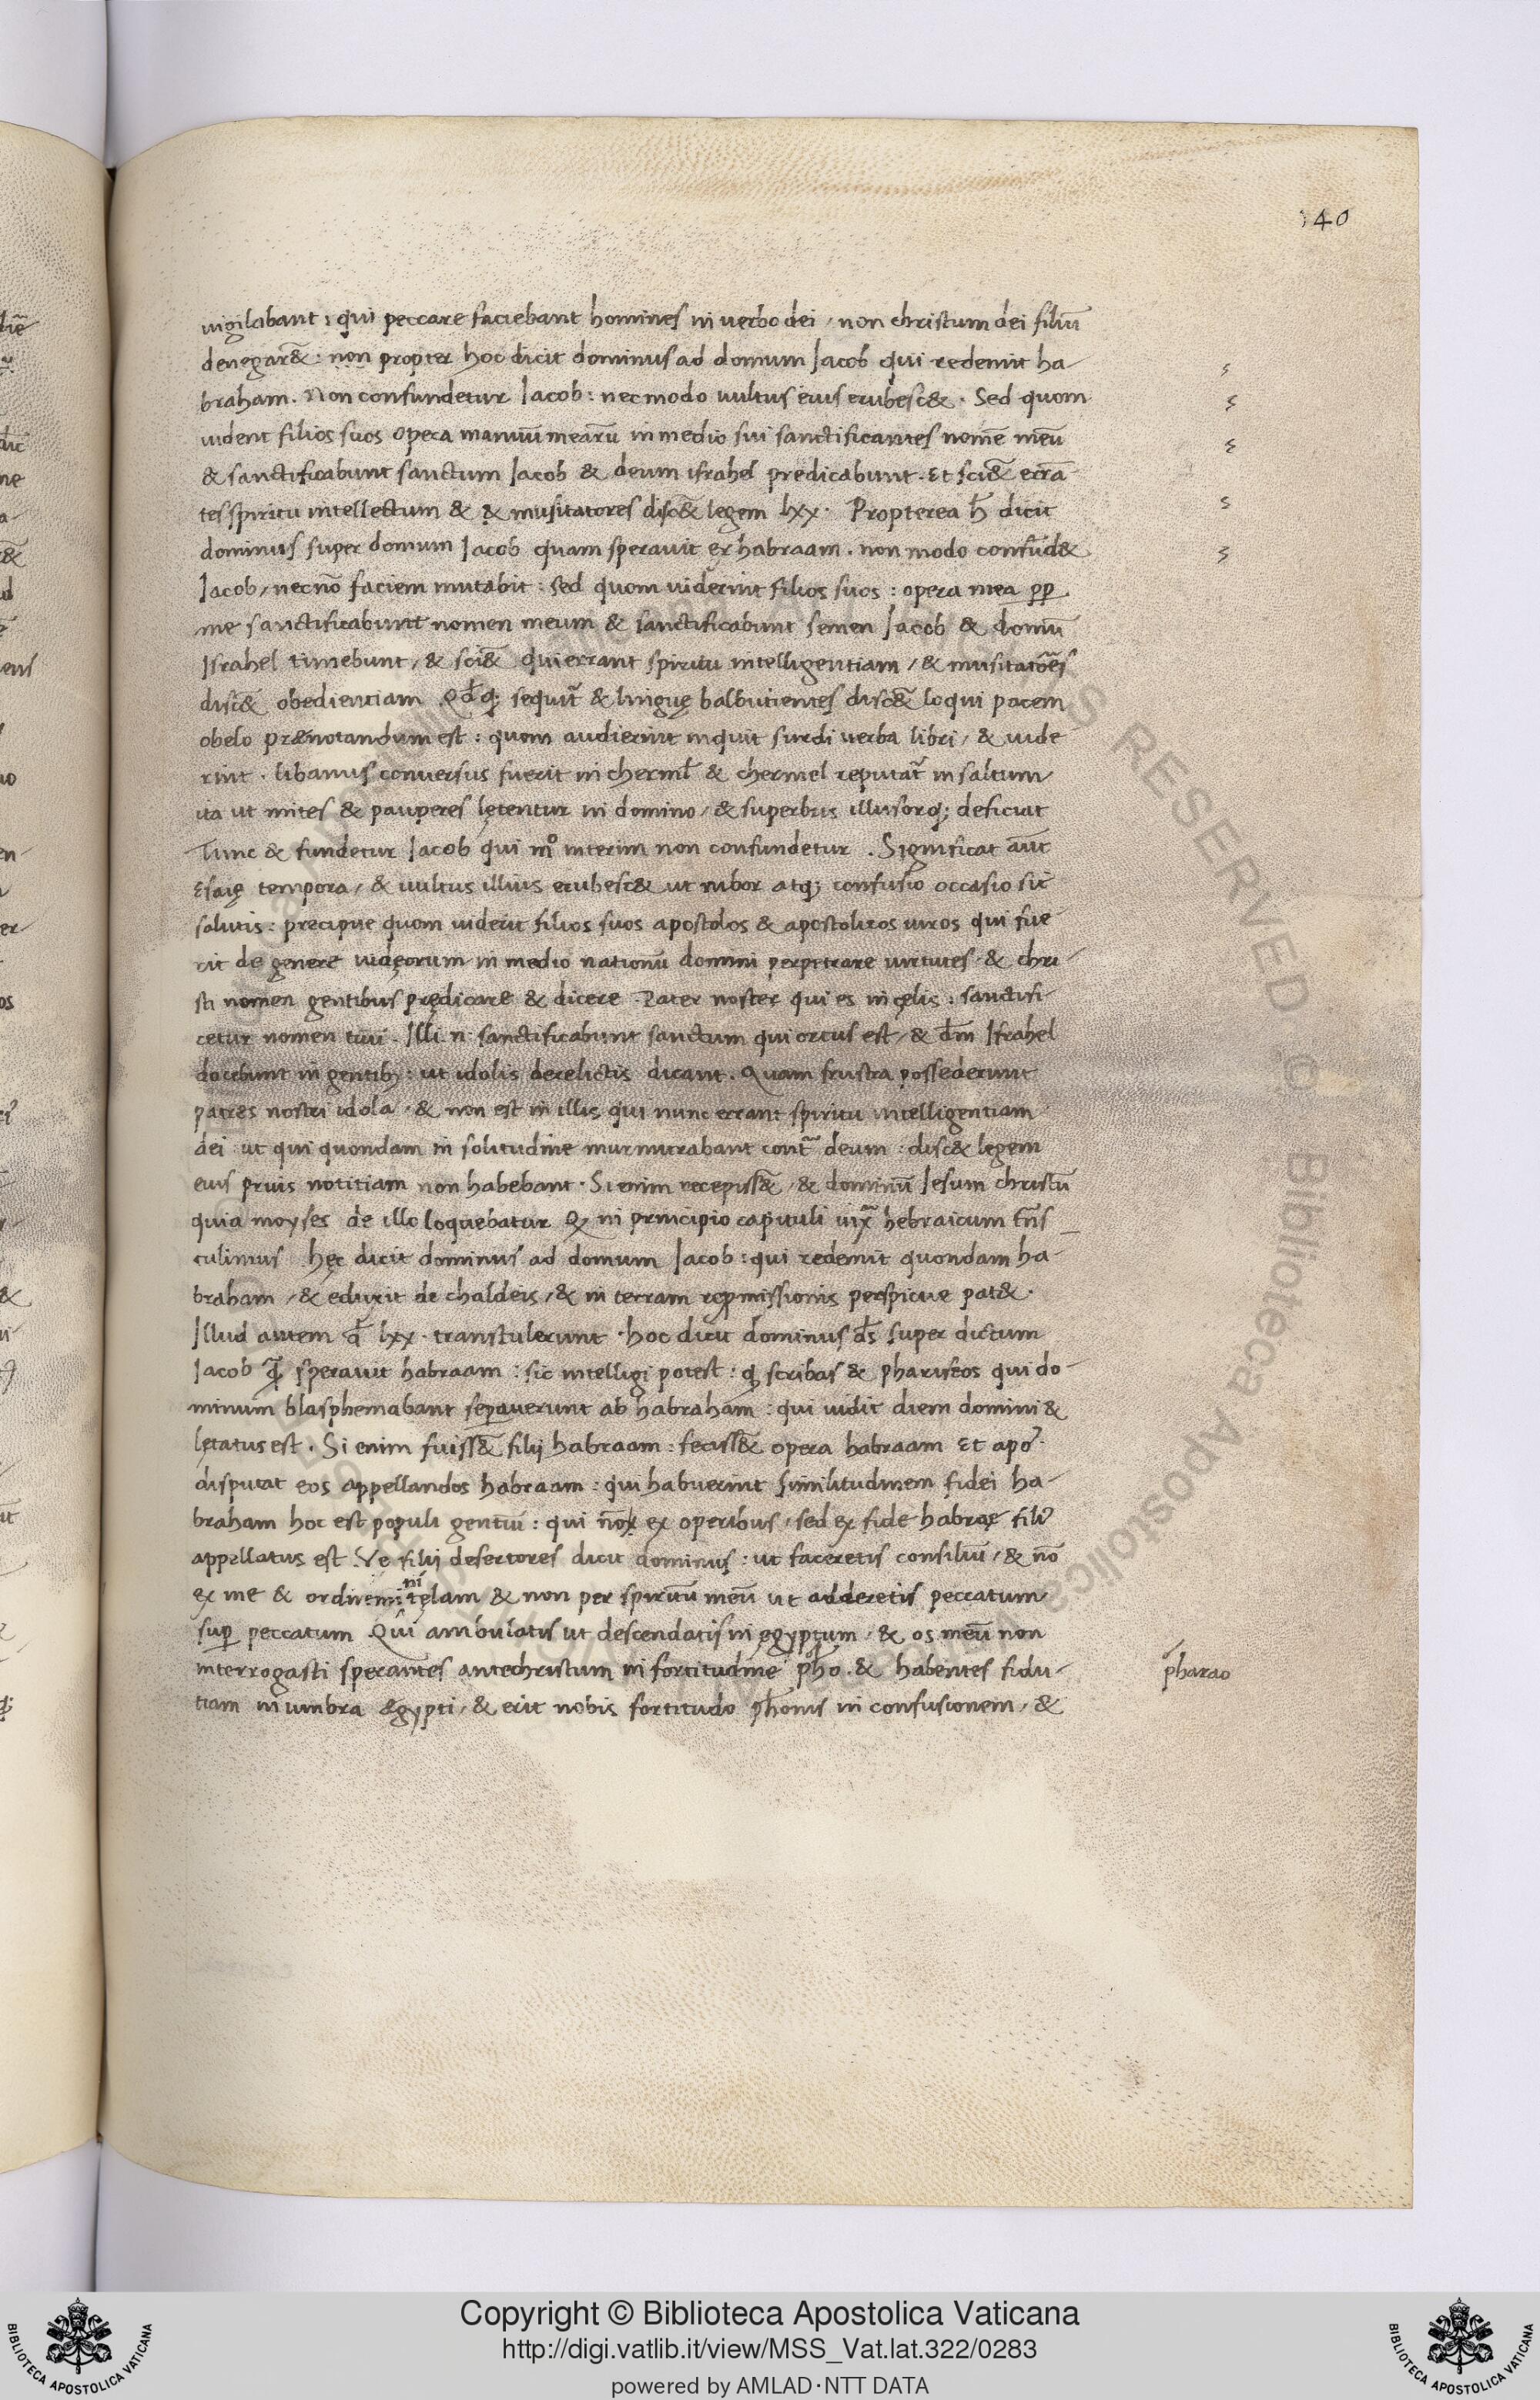 140
vigilabant: qui peccare faciebant homines in verbo dei / non christum dei filiū
denegar&̄: non propter hoc dicit dominus ad domum Jacob qui redemit ha-
braham. Non confundetur Jacob: nec modo vultus eius erubesc&. Sed quom
vident filios suos opera manuū mearū in medio sui sanctificantes nomē meū
& sanctificabunt sanctum Jacob & deum israhel predicabunt. Et sci&̄ erra-
tes spiritu intellectum & & musitatores disc&̄ legem lxx. Propterea h̄ dicit
dominus super domum Jacob quam speravit ex habraam. non modo confūd&
Jacob / nec nō faciem mutabit: sed quom viderint filios suos: opera mea pp
me sanctificabunt nomen meum & sanctificabunt semen Jacob & domū
Israhel timebunt / & sci&̄ qui errant spiritu intelligentiam / & musitatōes
disc&̄ obedientiam Qd̄q; sequit᷑ & linguę balbutientes disc&̄ loqui pacem
obelo prænotandum est: quom audierint inquit surdi verba libri / & vide-
rint. libanus conversus fuerit in cherml̄ & chermel reputat᷑ in saltum
ita ut mites & pauperes lętentur in domino / & superbus illusorq; deficiat
Tunc & fundetur Jacob qui mº interim non confundetur. Significat aūt
Esaię tempora / & vultus illius erubesc& ut rubor atq; confusio occasio sit
salutis: precipue quom viderit filios suos apostolos & apostolicos viros qui fue-
rit de genere videorum in medio nationū domini perpetrare virtutes & chri-
sti nomen gentibus prędicare & dicere. Pater noster qui es in cęlis: sanctifi-
cetur nomen tuū. Illi. n. sanctificabunt sanctum qui ortus est / & dm̄ Israhel
docebunt in gentib;: ut idolis derelictis dicant. Quam frustra possederunt
patres nostri idola. & non est in illis qui nunc errant spiritu intelligentiam
dei: ut qui quondam in solitudine murmurabant cont᷑ deum: disc& legem
eius prius notitiam non habebant. Si enim recepiss&̄ / & dominū Jesum christū
quia moyses de illo loquebatur in principio capituli hebraicum
tulimus Hęc dicit dominus ad domum Jacob: qui redemit quondam ha-
braham / & eduxit de chaldeis / & in terram repmissionis perspicue pat&.
Illud autem lxx. transtulerunt. hoc dicit dominus ds̄ super dictum
Jacob speravit habraam: sic intelligi potest: scribas & phariseos qui do-
minum blasphemabant sepaverunt ab habraham: qui vidit diem domini &
lętatus est. Si enim fuiss&̄ filij habraam: feciss&̄ opera habraam Et apo
disputat eos appellandos habraam: qui habuerint similitudinem fidei ha-
braham hoc est populi gentiū: qui ex operibus / sed ex fide habraę
appellatus est. Ve filij desertores dicit dominus: ut faceretis consiliū / & nō
ex me & ordiremini telam & non per spiritū meū ut adderetis peccatum
sup peccatum Qui ambulatis ut descendatis in ęgyptum / & os meū non
interrogasti sperantes antechristum in fortitudine pho. & habentes fidu-
pharao
tiam in umbra ęgypti / & erit nobis fortitudo phonis in confusionem / &
Copyright © Biblioteca Apostolica Vaticana
http://digi.vatlib.it/view/MSS_Vat.lat.322/0283
powered by AMLAD·NTT DATA